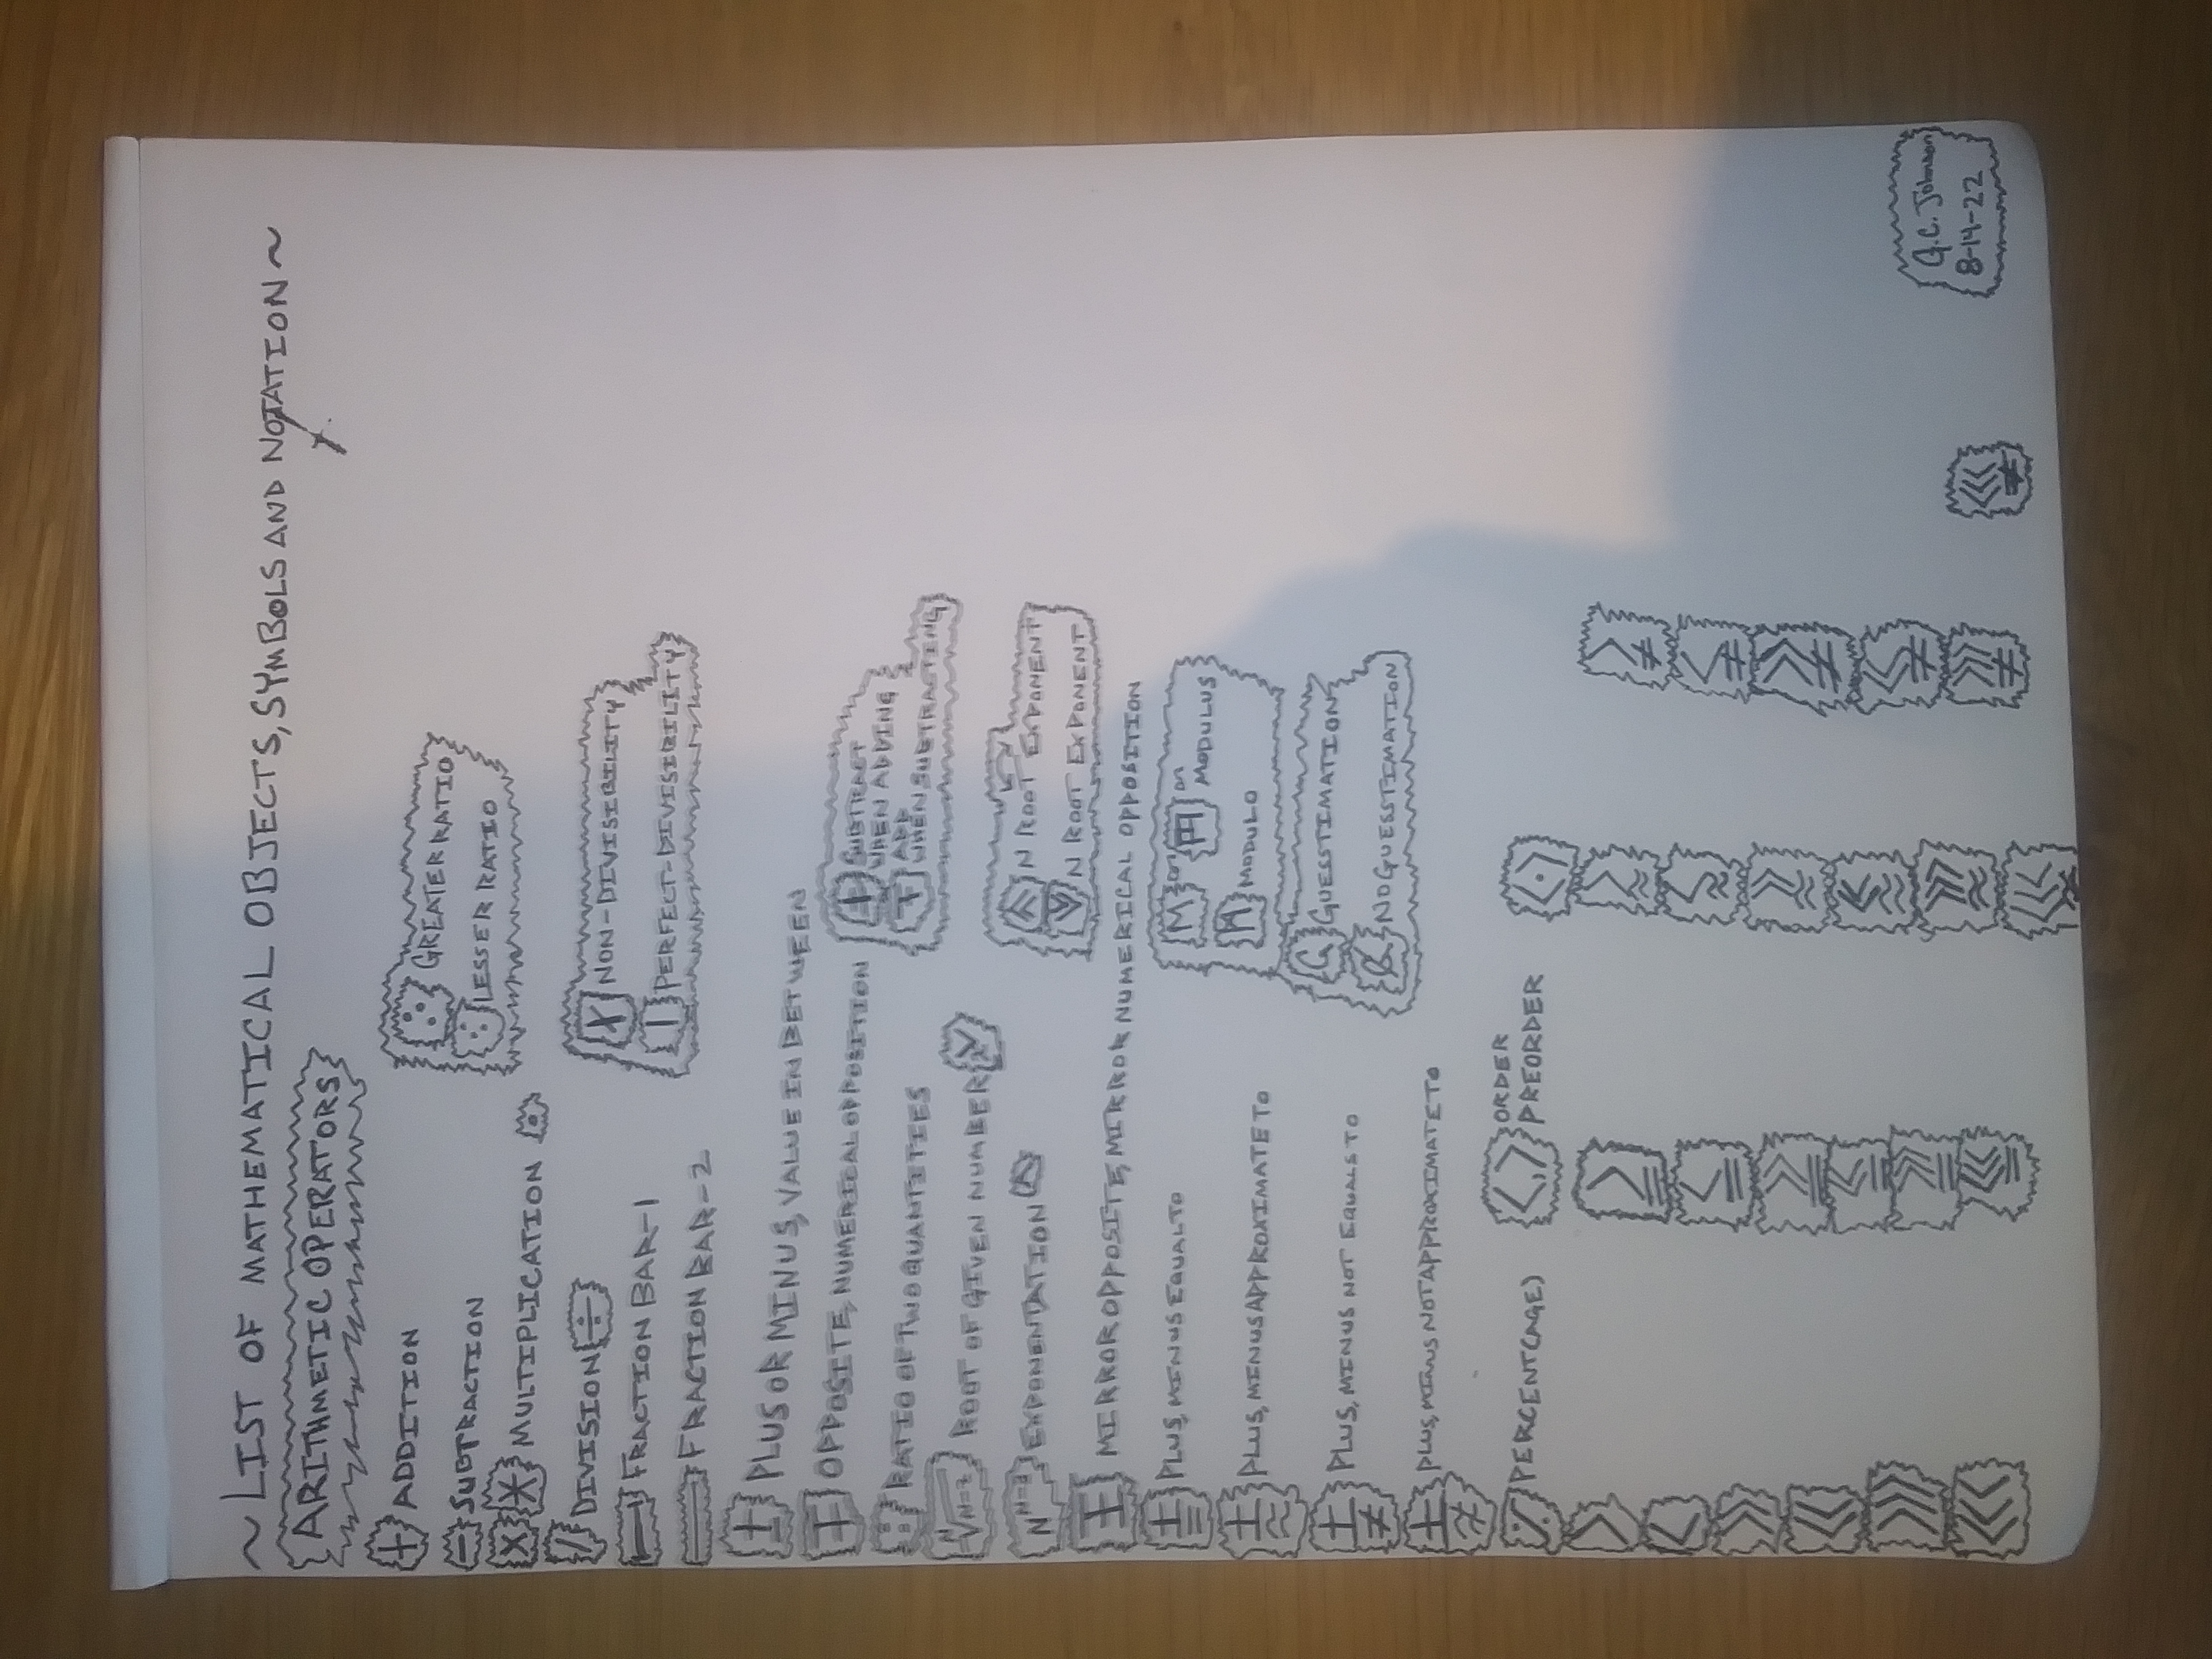 ~ LIST OF MATHEMATICAL OBJECTS, SYMBOLS AND NOTATION ~
ARITHMETIC OPERATORS
+ ADDITION
− SUBTRACTION
× * MULTIPLICATION ·
/ DIVISION ÷
— FRACTION BAR-1
— FRACTION BAR-2
± PLUS OR MINUS, VALUE IN BETWEEN
OPPOSITE, NUMERICAL OPPOSITION
RATIO OF TWO QUANTITIES
ROOT OF GIVEN NUMBER
EXPONENTATION
MIRROR OPPOSITE, MIRROR NUMERICAL OPPOSITION
± = PLUS, MINUS EQUAL TO
± ≈ PLUS, MINUS APPROXIMATE TO
± ≠ PLUS, MINUS NOT EQUALS TO
± ≉ PLUS, MINUS NOT APPROXIMATE TO
% PERCENT(AGE)
GREATER RATIO
LESSER RATIO
NON-DIVISIBILITY
| PERFECT-DIVISIBILITY
SUBTRACT
WHEN ADDING
ADD
WHEN SUBTRACTING
N ROOT EXPONENT
N ROOT EXPONENT
M or or
MODULUS
MODULO
G GUESSTIMATION
NO GUESSTIMATION
<,> ORDER
PREORDER
<·>
> ≥ > ≈ > ≠
< ≤ < ≈ < ≠
>> >> = >> ≈ >> ≠
<< << = << ≈ << ≠
>>> >>> = >>> ≈ >>> ≠
<<< <<< = <<< ≈ <<< ≠
G.C. Johnson
8-14-22